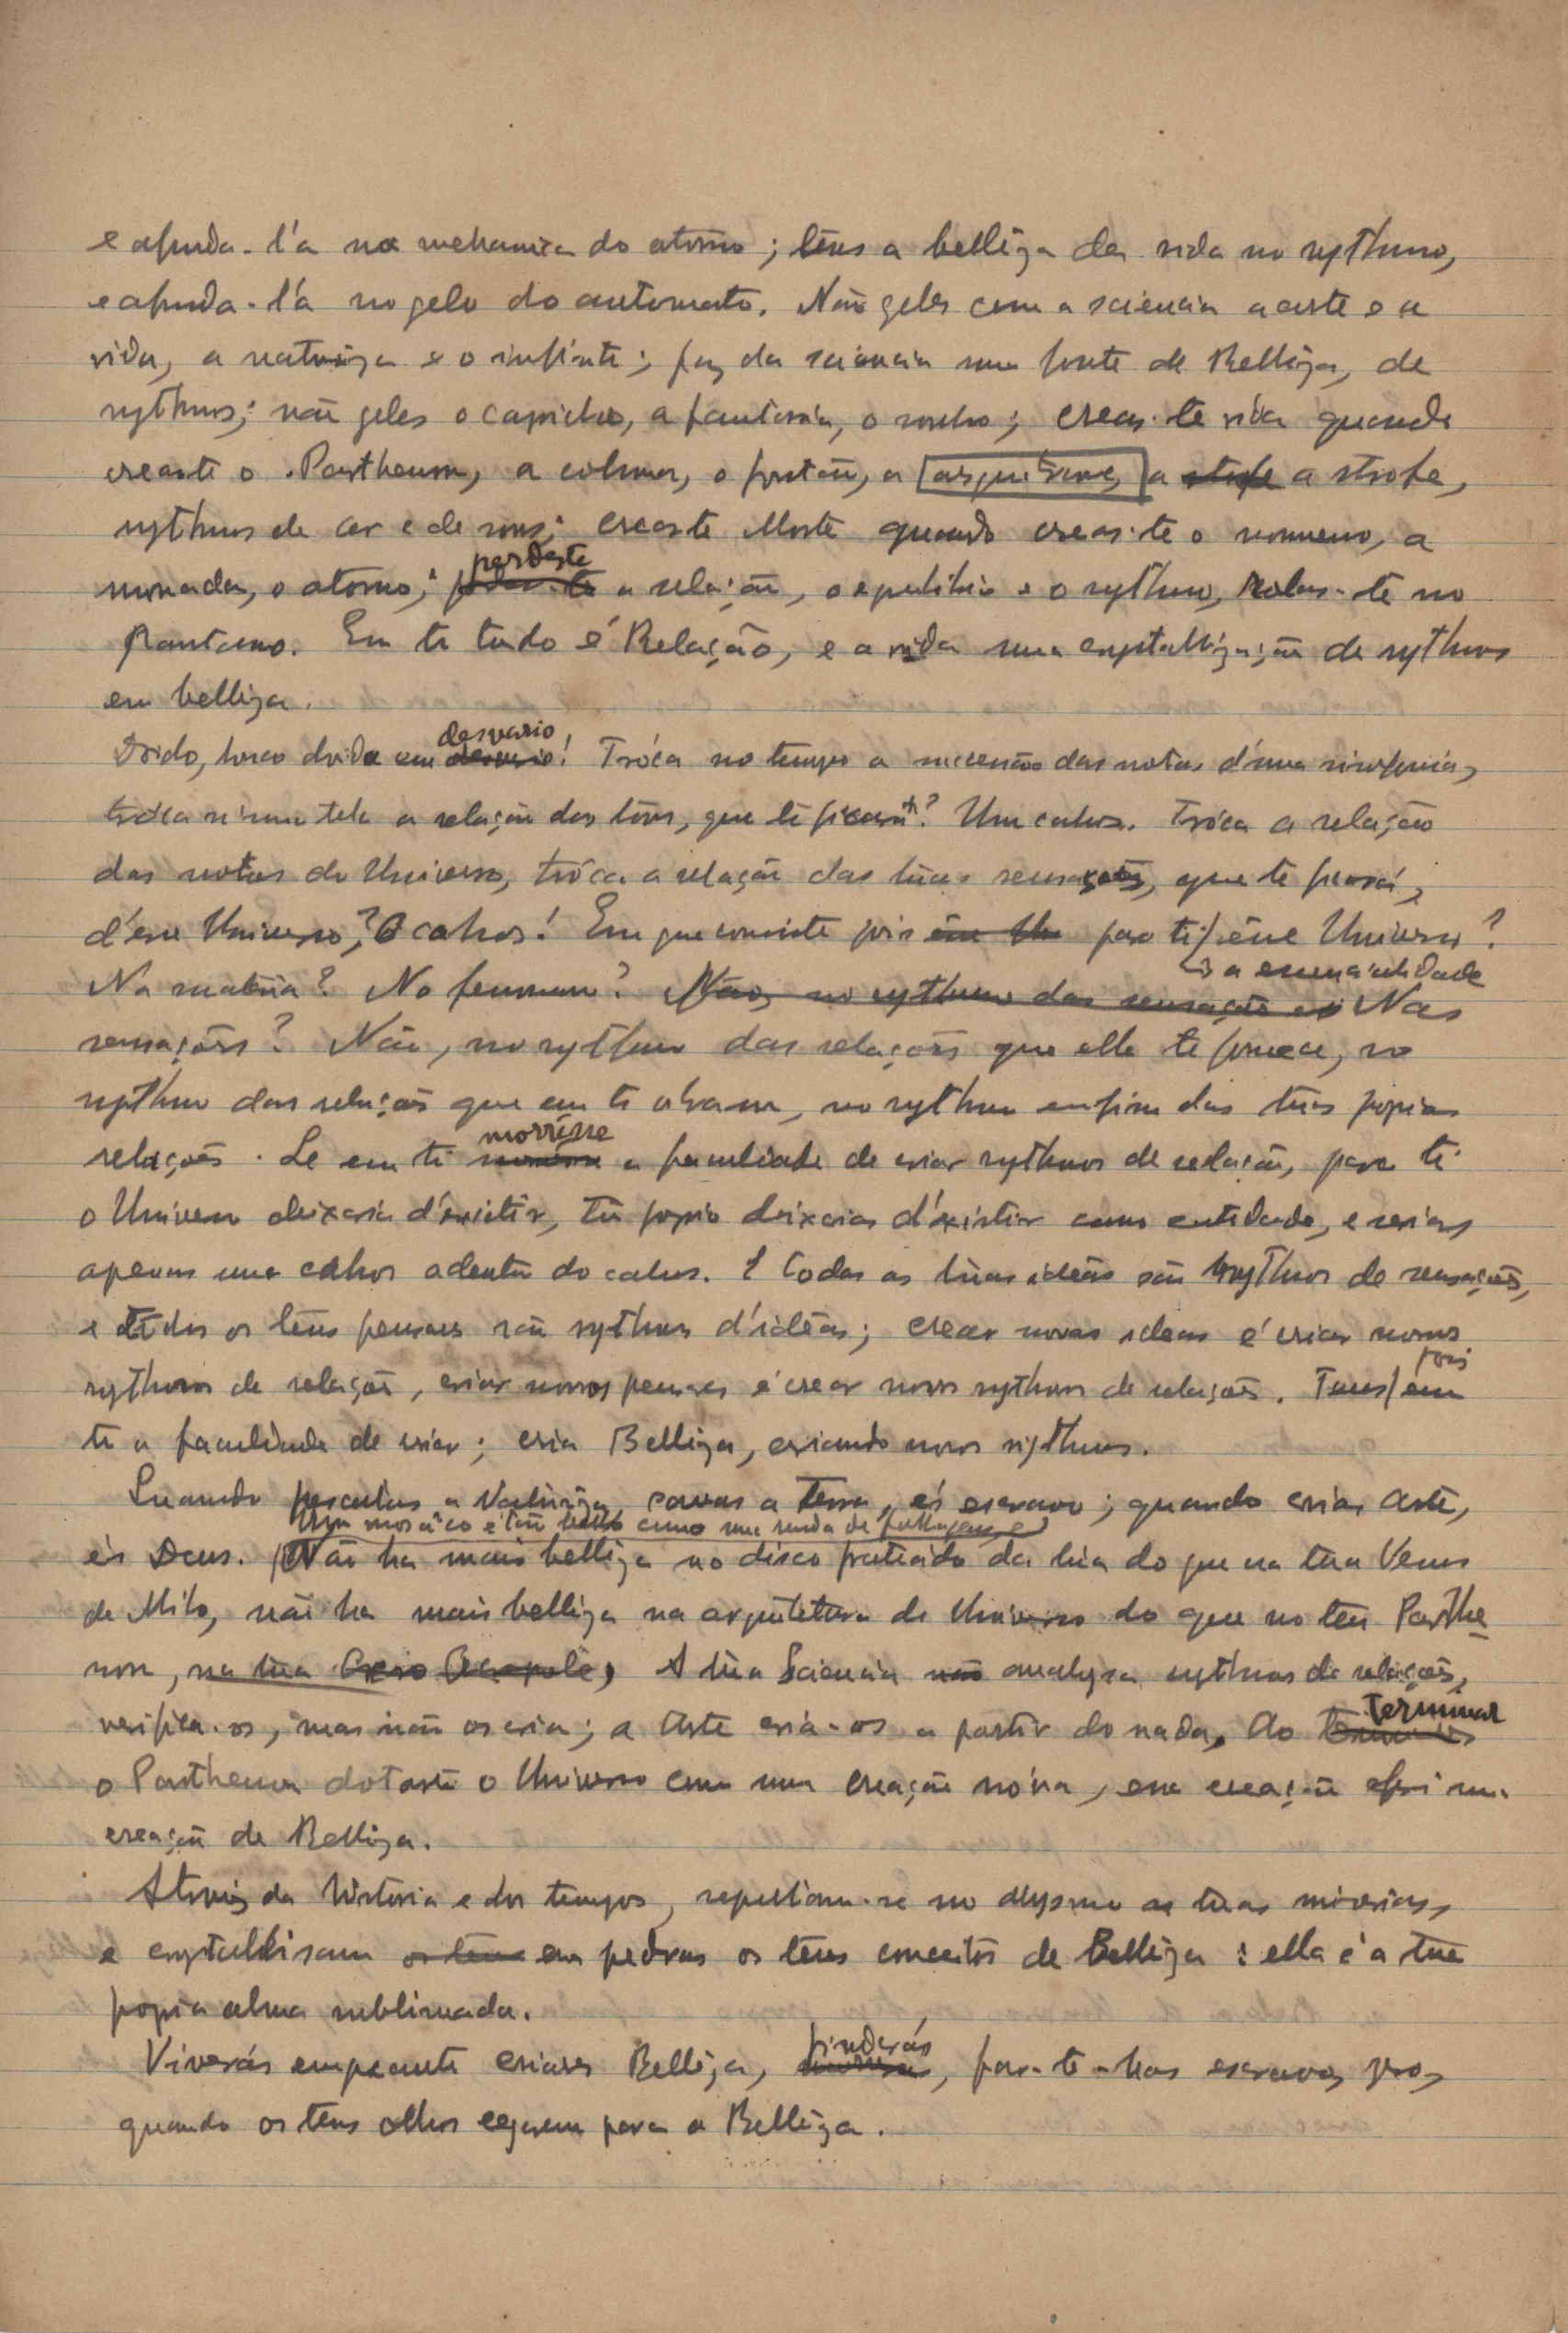 e afunda-l'a na mechanica do atomo; tens a belleza da vida no rythmo,
e afunda-l'a no gelo do automato. Não geles com a sciencia a arte e a
vida, a natureza e o infinito; faz da sciencia uma fonte de Belleza, de
rythmos; não geles o capricho, a fantasia, o sonho; creas-te vida quando
creaste o Parthenon, a coluna, o frontão, a a strofe,
rythmos de cor e de sons; creaste Morte quando creas-te o numeno, a
monada, o atomo; perdeste a relação, o equilibrio e o rythmo, rolas-te no
Pantano. Em ti tudo é Relação, e a vida uma crystallização de rythmos
em belleza.
Doido, louco doido em desvario! Tróca no tempo a sucessão das notas d'uma sinfonia,
tróca n'uma tela a relação dos tons, que te ficará? Um cahos. Tróca a relação
das notas do Universo, tróca a relação das tuas sensações, que te ficará,
d'esse Universo? O cahos! Em que consiste pois para ti a essencialidade esse Universo?
Na materia? No fenomeno? Nas
sensações? Não, no rythmo das relações que elle te fornece, no
rythmo das relações que em ti cream, no rythmo enfim das tuas propias
relações. Se em ti morresse a faculdade de criar rythmos de relação, para ti
o Universo deixaria d'existir, tu propio deixarias d'existir como entidade, e serias
apenas um cahos adentro do cahos. E todas as tuas idéas são rythmos de sensações,
e todos os teus pensares são rythmos d'idéas; crear novas ideas é criar novos
rythmos de relações, criar novos pensares é crear novos rythmos de relações. Tens pois em
ti a faculdade de criar; cria Belleza, criando novos rythmos.
Quando perscutas a Natureza, cavas a Terra, és escravo; quando crias Arte,
és Deus. Um mosaico é tão bello como uma renda de folhagens, e
Não ha mais belleza no disco prateado da lua do que na tua Venus
de Milo, não ha mais belleza na arquitetura do Universo do que no teu Parthe-
non, na tua A tua Sciencia analysa rythmos de relações,
verifica-os, mas não os cria; a Arte cria-os a partir do nada. Ao terminar
o Parthenon dotaste o Universo com uma creação nova, essa creação foi uma
creação de Belleza.
Através da Historia e dos tempos, sepultam-se no abysmo as tuas miserias,
e crystallisam em pedras os teus conceitos de Belleza: ella é a tua
propia alma sublimada.
Viverás emquanto criares Belleza, findarás, far-te-has escravo,
quando os teus olhos cegarem para a Belleza.